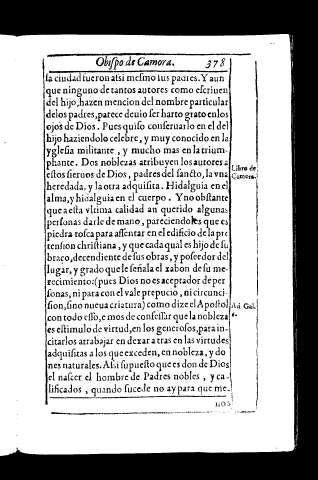 Obispo de Camora. 378
la ciudad fueron assi mesmo sus padres. Y aun
que ninguno de tantos autores como escriuen
del hijo, hazen mencion del nombre particular
de los padres, parece deuio ser harto grato en los
ojos de Dios. Pues quiso conseruarlo en el del
hijo haziendolo celebre, y muy conocido en la
yglesia militante, y mucho mas en la trium-
phante. Dos noblezas atribuyen los autores a
estos sieruos de Dios, padres del sancto, la vna
heredada, y la otra adquisita. Hidalguia en el
alma, y hidalguia en el cuerpo. Y no obstante
que a esta vltima calidad an querido algunas
personas darle de mano, pareciendoles que es
piedra tosca para assentar en el edificio de la pre
tension christiana, y que cada qual es hijo de su
braço, decendiente de sus obras, y poseedor del
lugar, y grado que le señala el xabon de su me-
recimiento: (pues Dios no es aceptador de per
sonas, ni para con el vale prepucio, ni circunci-
sion, sino nueua criatura) como dize el Apostol
con todo esso, emos de confessar que la nobleza
es estimulo de virtud, en los generosos, para in-
citarlos a trabajar en dexar a tras en las virtudes
adquisitas a los que exceden, en nobleza, y do
nes naturales. Assi supuesto que es don de Dios
el nascer el hombre de Padres nobles, y ca-
lificados, quando sucede no ay para que me-
nos
Libro de
Camora.
Ad Gal.